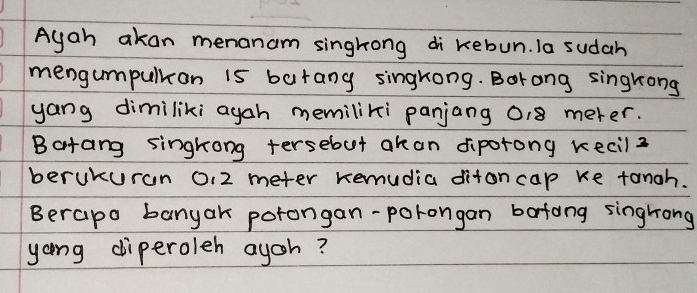 Ayah akan menanam singkong di kebun. Ia sudah
mengumpulkan 15 batang singkong. Batang singkong
yang dimiliki ayah memiliki panjang 0,8 meter.
Batang singkong tersebut akan dipotong kecil2
berukuran 0,2 meter kemudia ditancap ke tanah.
Berapa banyak potongan-potongan batang singkong
yang diperoleh ayah ?